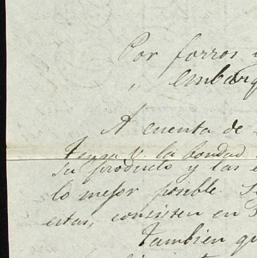 Por forros y
" embarq
A cuenta de
Tenga V. la bondad
su producto y las e
lo mejor posible. S
estas, consisten en
Tambien qu